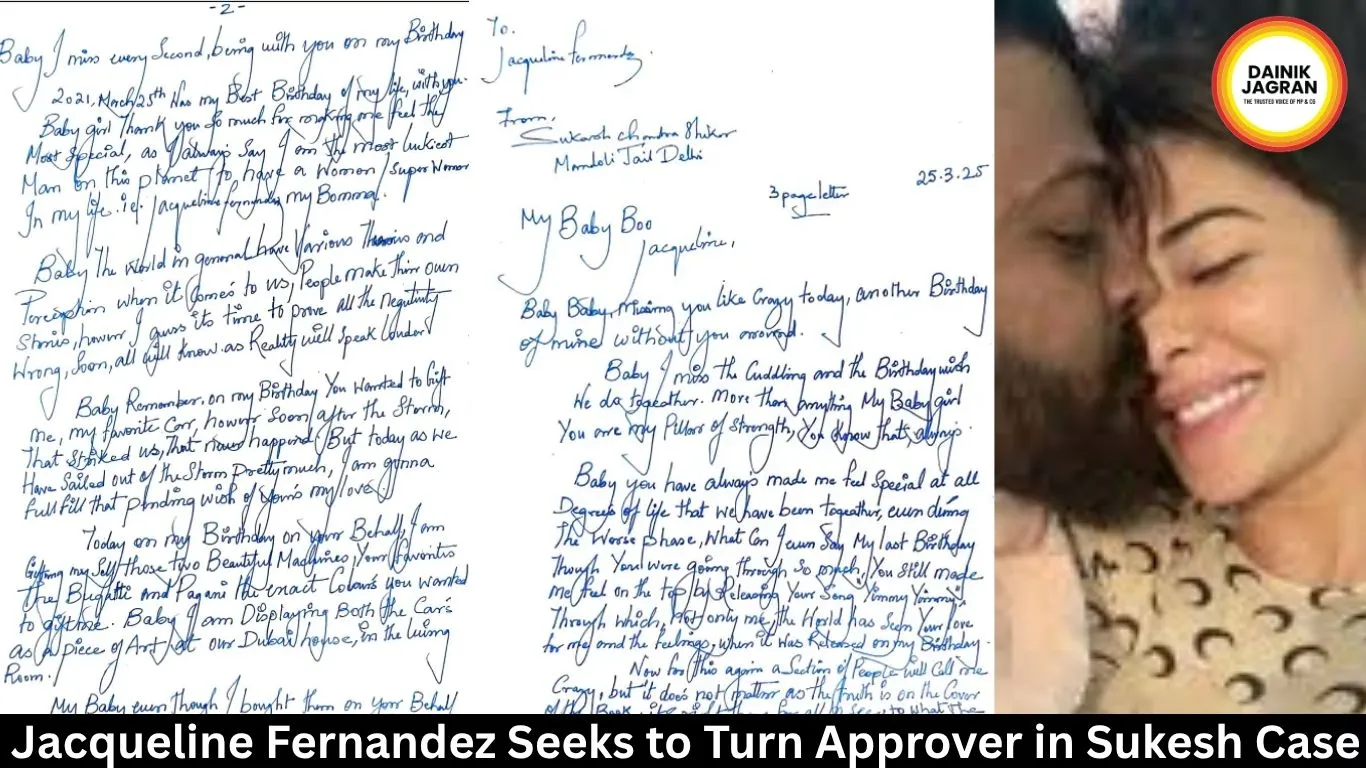 -2-
Baby I miss every Second, being with you on my Birthday
2021, March 25th Was my Best Birthday of my life, with you.
Baby girl Thank you So much for making me feel the
Most Special, as I always Say I am the most luckiest
Man on this planet to have a Women/Super Women
In my life i.e. Jacqueline fernandez my Bomma.
Baby The World in general have Various and
Perception when it Comes to us, People make their own
I guess its time to prove all the
Wrong, Soon, all will know as Reality will Speak louder
Baby Remember, on my Birthday You Wanted to Gift
me, my favorite Car, Soon after the Storm,
That us, That happend. But today as we
Have Sailed out of the Storm Pretty much, I am gonna
fullfill that pending wish of your's my love
Today on my Birthday on your Behalf, I am
Gifting my Self those two Beautiful Machines, Your
The and Pagani the exact Colours you wanted
to gift me. Baby I am Displaying Both the Car's
as a piece of Art at our Dubai house, in the living
Room.
My Baby even though I bought them on your Behalf
To.
Jacqueline
From,
Mandoli Jail Delhi
25.3.25
3 page letter
My Baby Boo
Jacqueline,
Baby Baby, Missing you like Crazy today, another Birthday
of mine without you around.
Baby I miss the Cuddling and the Birthday wish
We do More than anything My Baby girl
You are my Pillar of Strength, You know that, always.
Baby you have always made me feel Special at all
Degrees of life that we have been even during
The Worse phase, What Can I even Say My last Birthday
Though You were going through So much, You still made
me feel on the top by Releasing Your Song "Yimmy Yimmy"
Through which, Not only me, the World has Seen Your love
for me and the feelings, when it was Released on my Birthday.
Now for this again a Section of People will Call me
Crazy, but it does not matter as the truth is on the Cover
of the Book
DAINIK
JAGRAN
THE TRUSTED VOICE OF MP & CG
Jacqueline Fernandez Seeks to Turn Approver in Sukesh Case